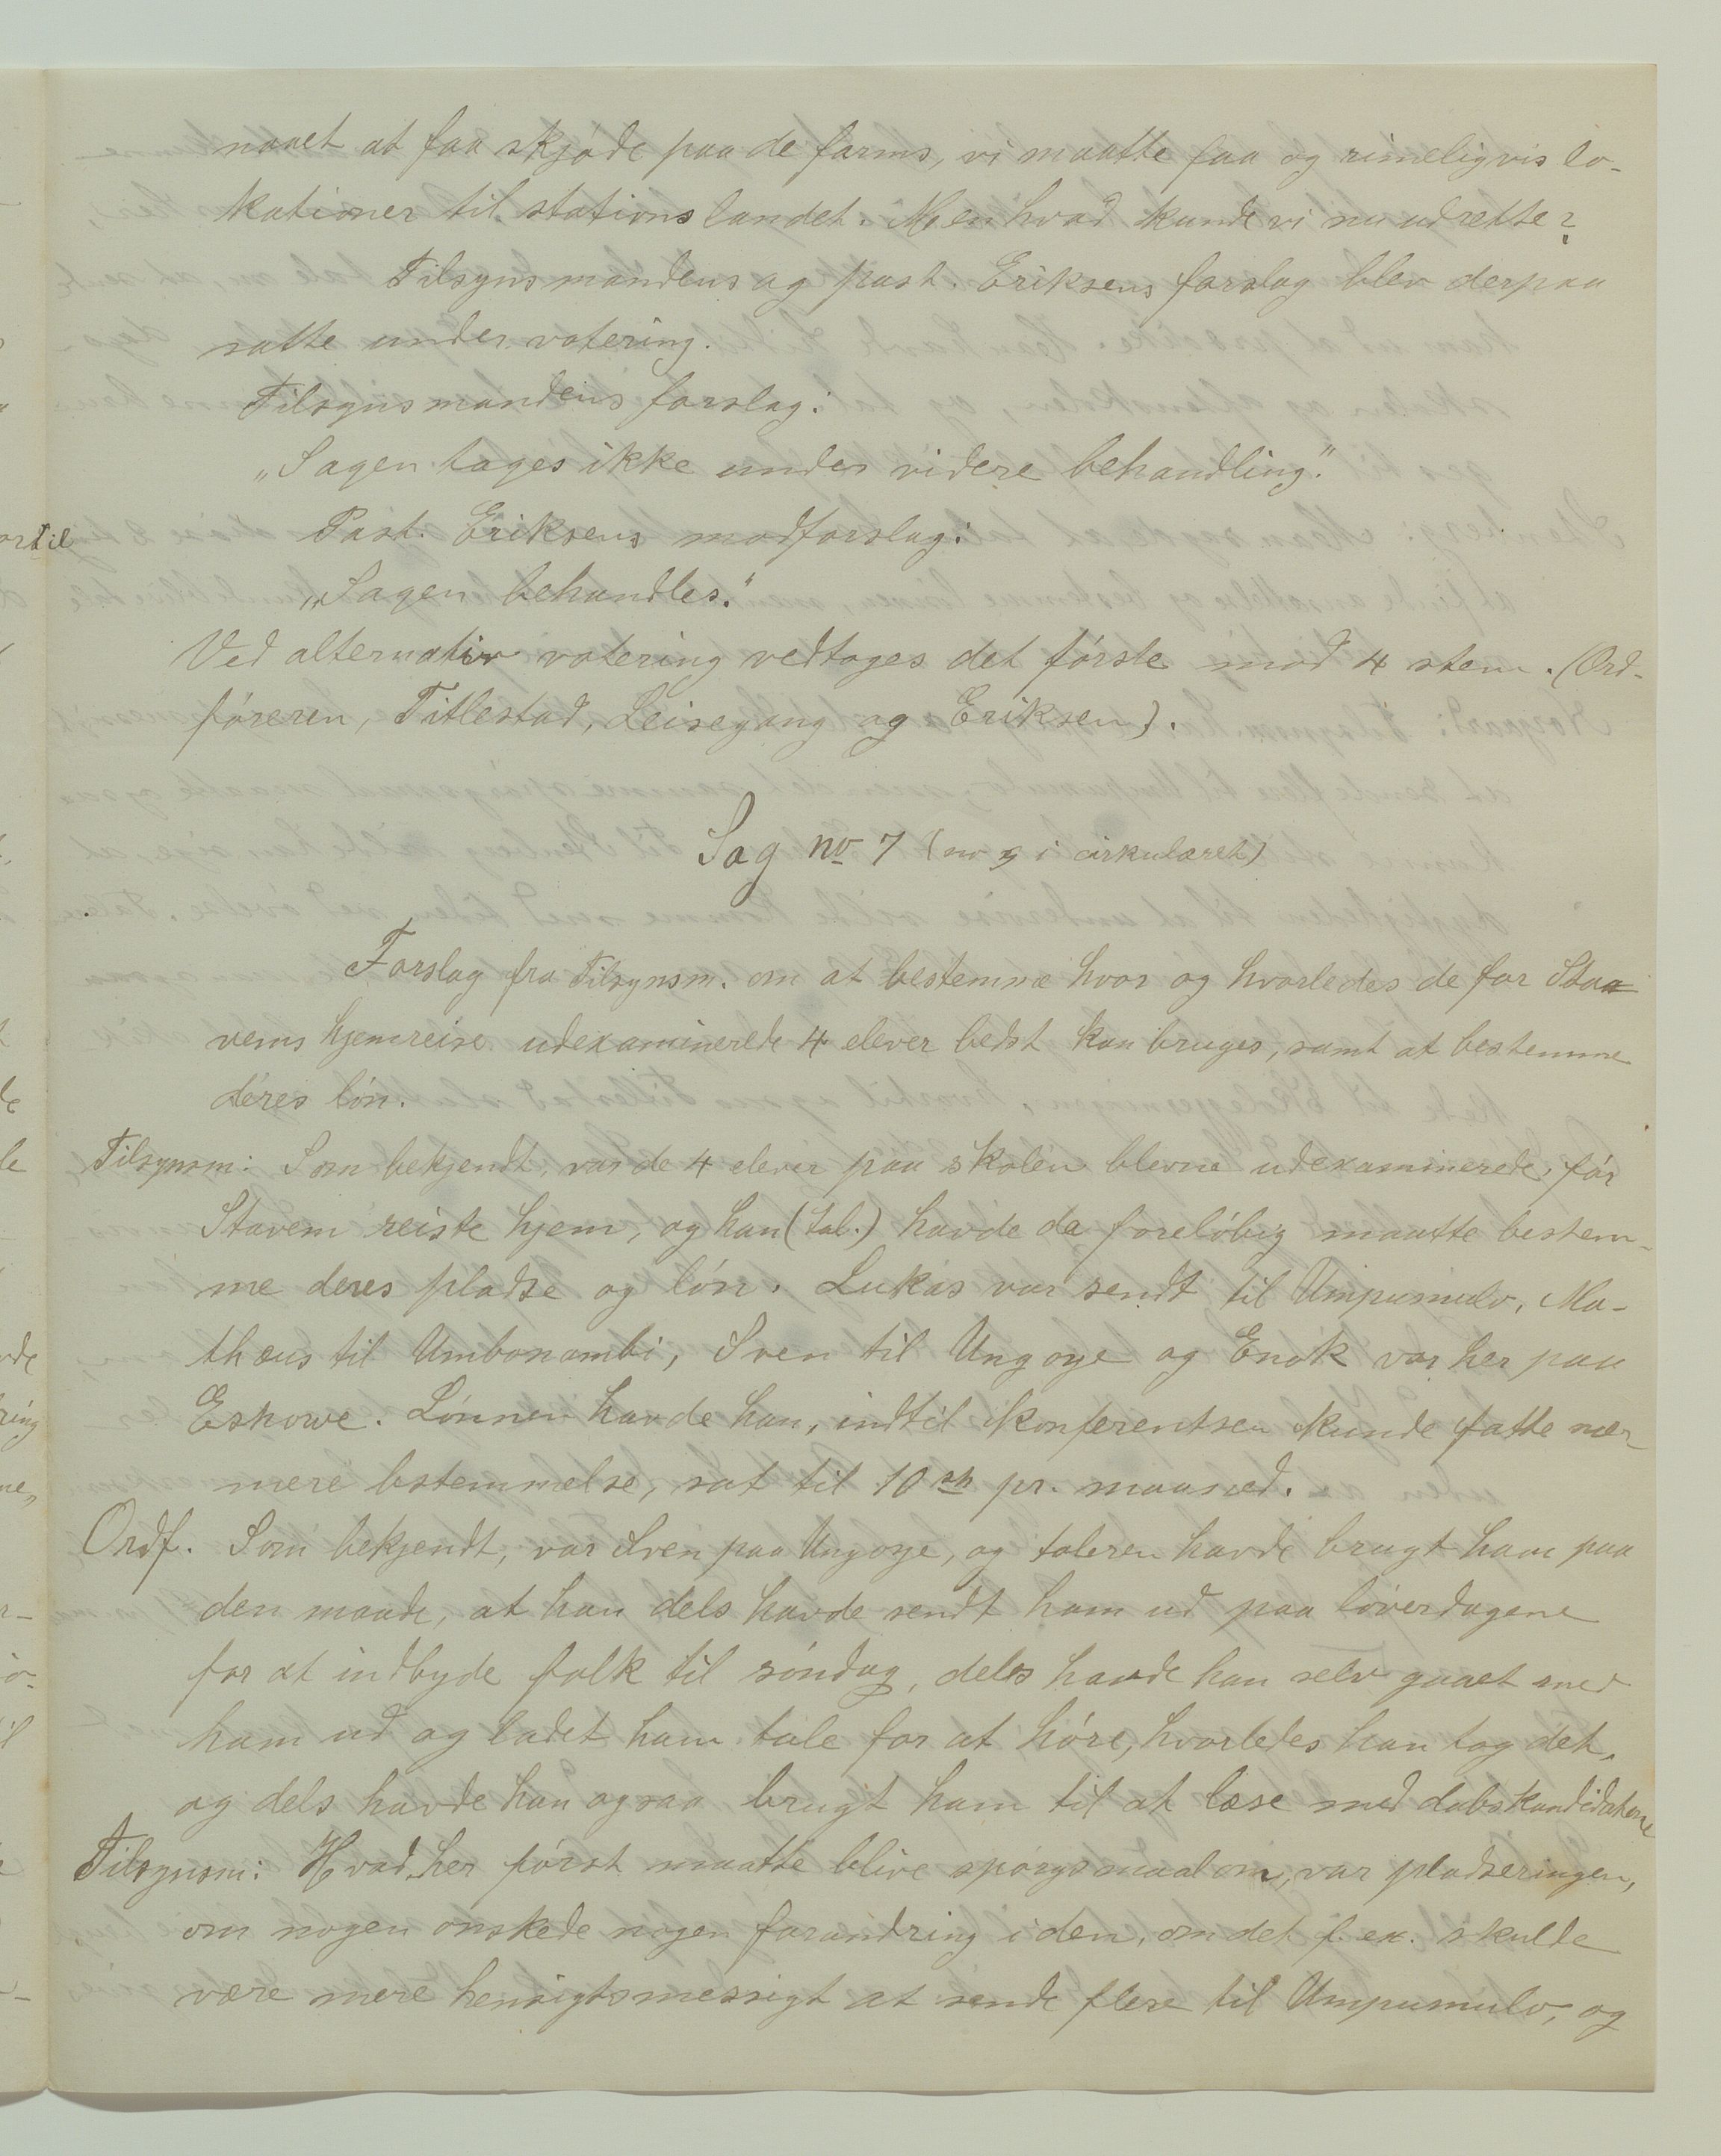 naaet at faa skjøde paa de farms, vi maatte faa og rimeligvis lo-
kationer til stationslandet. Men hvad kunde vi nu udrette?
Tilsynsmandens og past. Eriksens forslag blev derpaa
satte under votering.
Tilsynsmandens forslag:
„Sagen tages ikke under videre behandling."
Past. Eriksens modforslag:
„Sagen behandles."
Ved alternativ votering vedtoges det første mod 4 stem. (Ord-
føreren, Titlestad, Leisegang og Eriksen).
Sag no 7 (no i cirkulæret)
Forslag fra Tilsynsm. om at bestemme hvor og hvorledes de før Sta
vems hjemreise udexaminerede 4 elever bedst kan bruges, samt at bestemme
deres løn.
Tilsynsm: Som bekjendt, var de 4 elever paa skolen blevne udexaminerede, før
Stavem reiste hjem, og han (tal.) havde da foreløbig maatte bestem-
me deres pladse og løn. Lukas var sendt til Umpumulo, Ma-
thæus til Umbonambi, Sven til Ungoye og Enok var her paa
Eshowe. Lønnen havde han, indtil konferentsen kunde fatte nær-
mere bstemmelse, sat til 10 sh pr. maaned.
Ordf. Som bekjendt, var Sven paa Ungoye, og taleren havde brugt ham paa
den maade, at han dels havde sendt ham ud paa løverdagene
for at indbyde folk til søndag, dels havde han selv gaaet med
ham ud og ladet ham tale for at høre, hvorledes han tog det,
og dels havde han ogsaa brugt ham til at læse med dabskandidaterne
Tilsynsm: Hvad her først maatte blive spørgsmaal om, var pladseringen,
om nogen ønskede nogen forandring i den, om det f. ex. skulde
være mere hensigtsmessigt at sende flere til Umpumulo, og